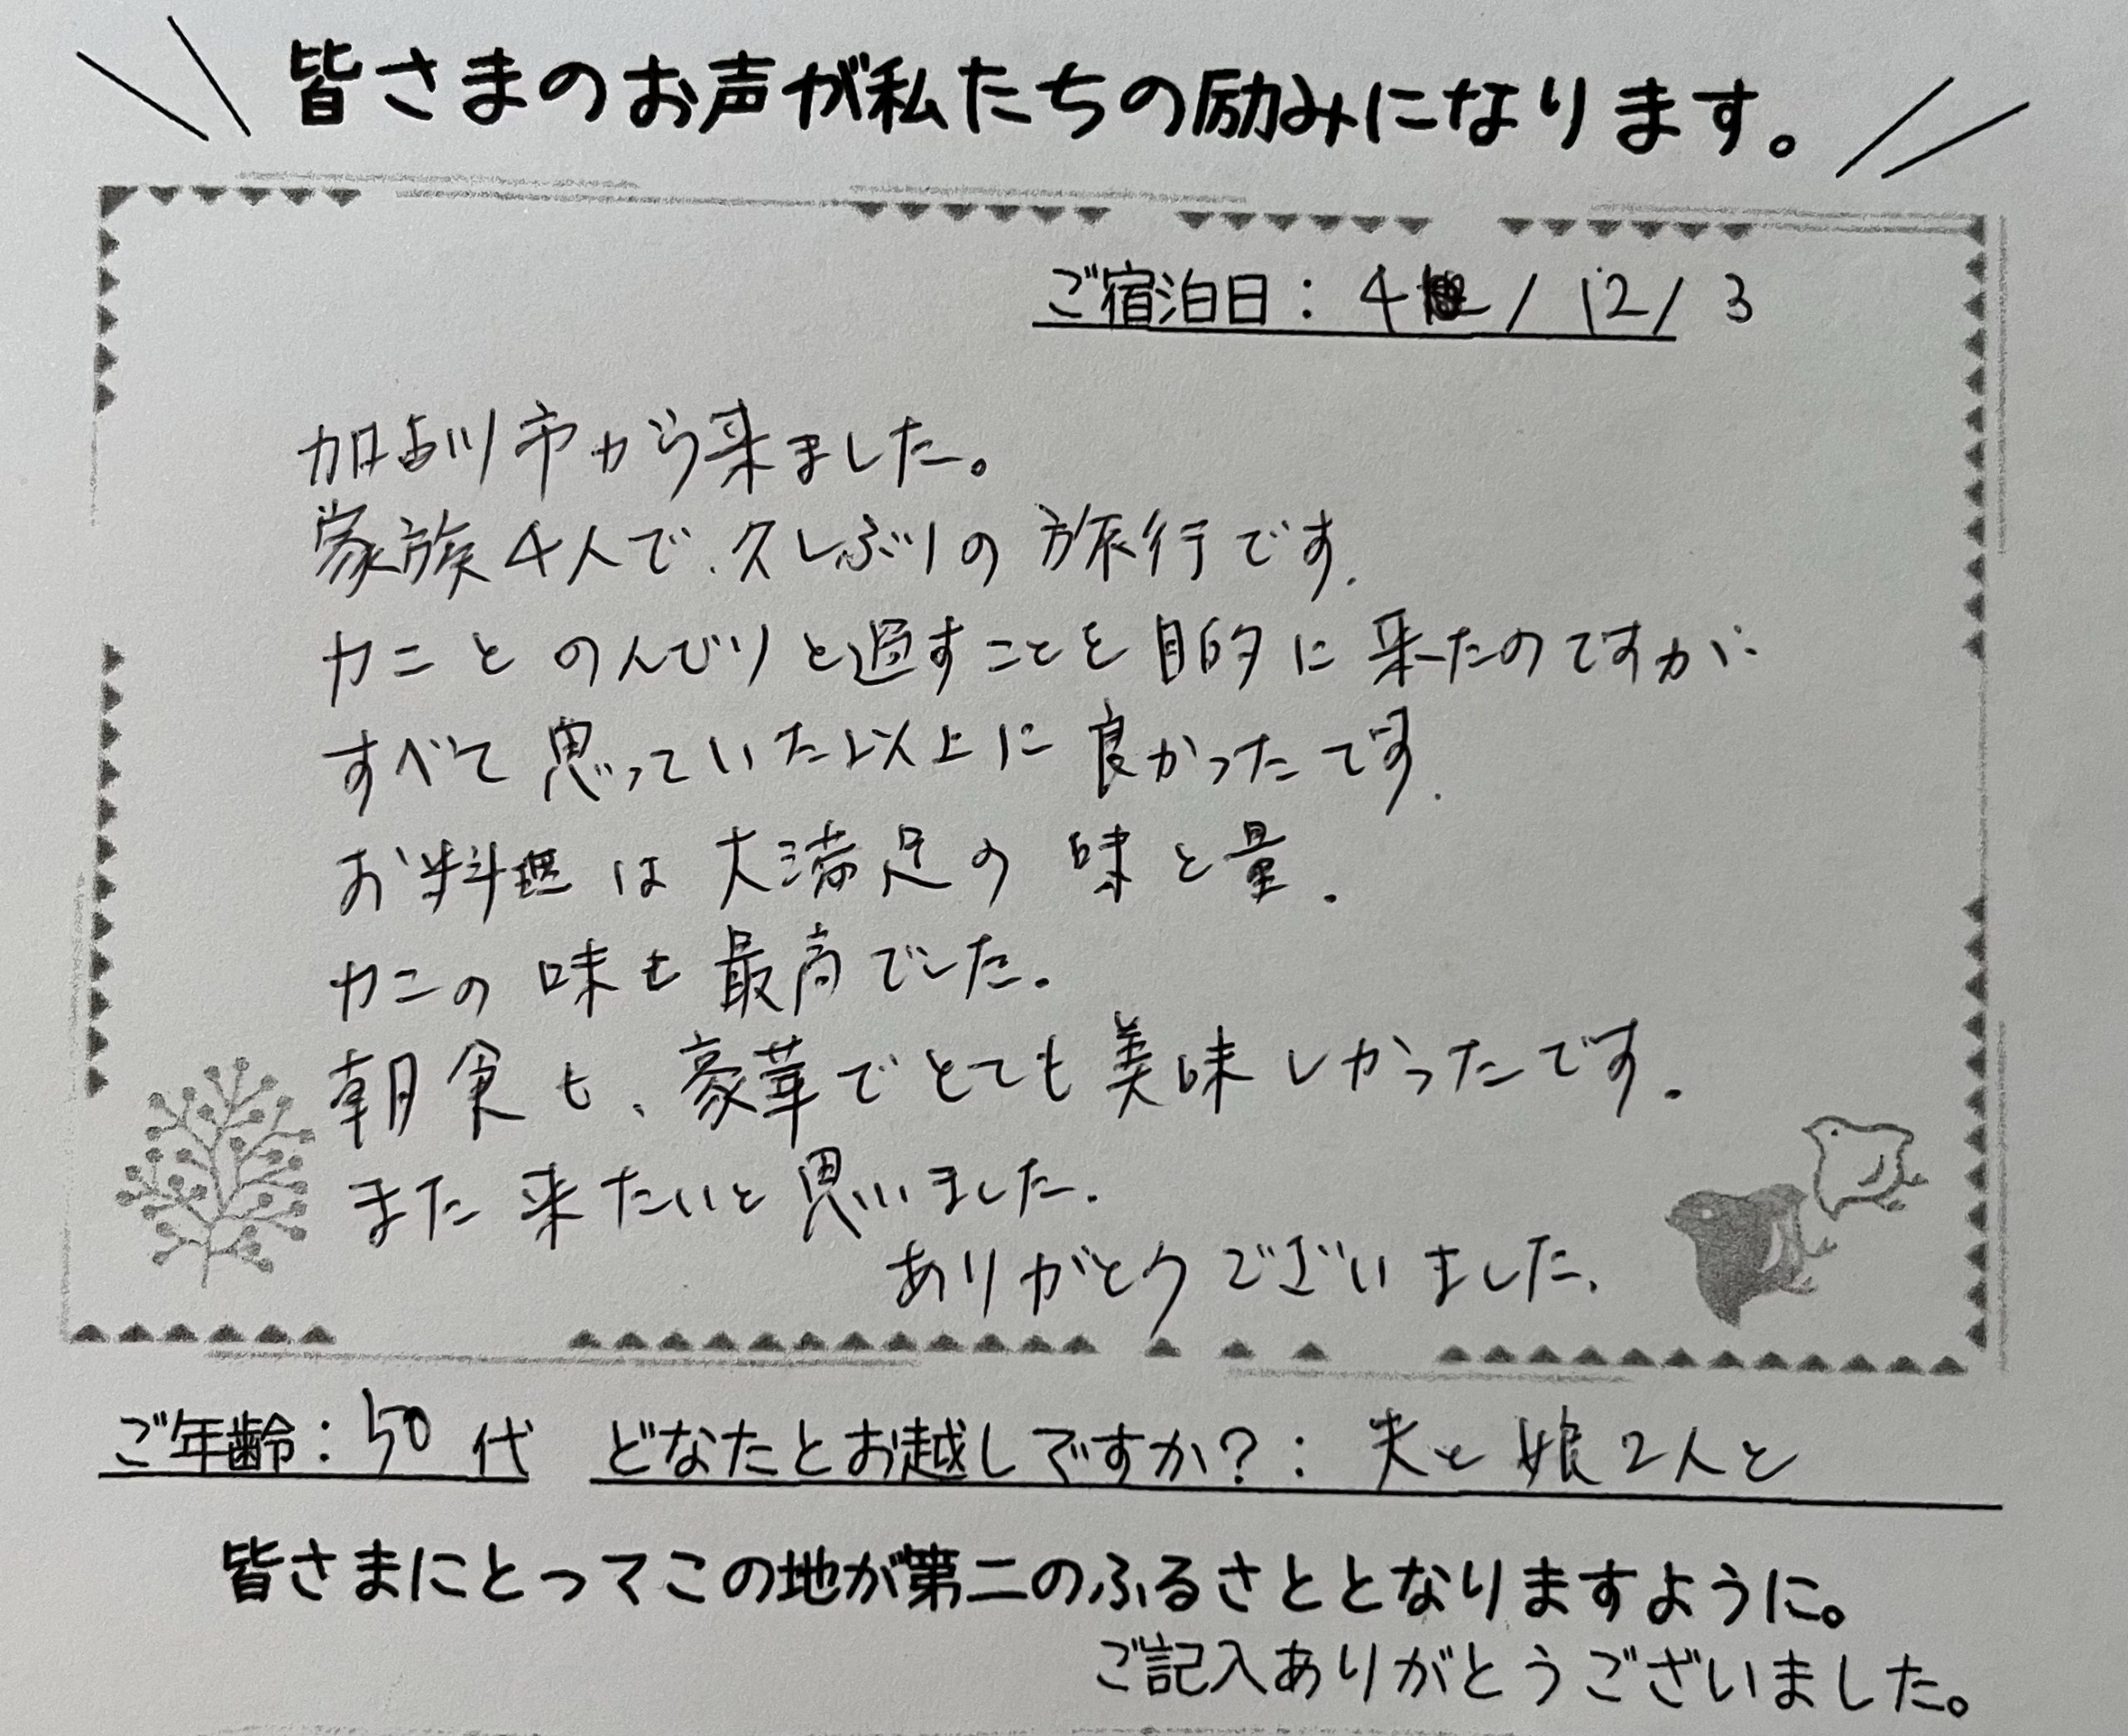 皆さまのお声が私たちの励みになります。
ご宿泊日: 4 / 12 / 3
加古川市から来ました。
家族4人で、久しぶりの旅行です.
カニとのんびりと過すことを目的に来たのですが
すべて思っていた以上に良かったです.
お料理は大満足の味と量.
カニの味も最高でした.
朝食も、豪華でとても美味しかったです.
また来たいと思いました.
ありがとうございました.
ご年齢: 50代 どなたとお越しですか?: 夫と娘2人と
皆さまにとってこの地が第二のふるさととなりますように。
ご記入ありがとうございました。